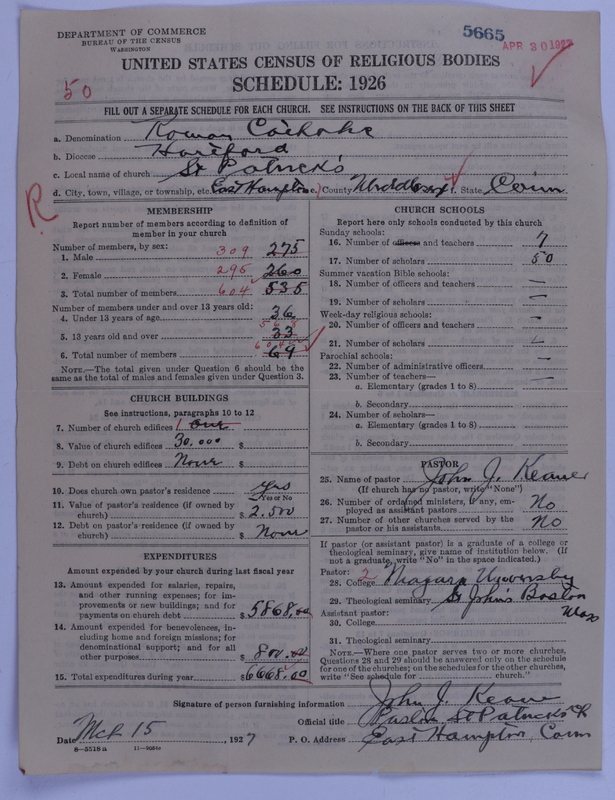 DEPARTMENT OF COMMERCE
BUREAU OF THE CENSUS
WASHINGTON
5665
APR 30 1927
50
UNITED STATES CENSUS OF RELIGIOUS BODIES
SCHEDULE: 1926
FILL OUT A SEPARATE SCHEDULE FOR EACH CHURCH. SEE INSTRUCTIONS ON THE BACK OF THIS SHEET
a. Denomination Roman Catholic
b. Diocese Hartford
c. Local name of church St Patrick's
d. City, town, village, or township, etc. East Hampton e. County Middlesex f. State Conn
R
MEMBERSHIP
Report number of members according to definition of
member in your church
Number of members, by sex:
1. Male 309 275
2. Female 295 260
3. Total number of members 604 535
Number of members under and over 13 years old:
4. Under 13 years of age 36
5. 13 years old and over 568 33
6. Total number of members 604 69
NOTE.—The total given under Question 6 should be
same as the total of males and females given under Question 3.
CHURCH BUILDINGS
See instructions, paragraphs 10 to 12
7. Number of church edifices 1 One
8. Value of church edifices 30.000 $
9. Debt on church edifices None $
10. Does church own pastor's residence Yes
Yes or No
11. Value of pastor's residence (if owned by
church) $ 2.500
12. Debt on pastor's residence (if owned by
church) $ None
EXPENDITURES
Amount expended by your church during last fiscal year
13. Amount expended for salaries, repairs,
and other running expenses; for im-
provements or new buildings; and for
payments on church debt $ 5868.00
14. Amount expended for benevolences, in-
cluding home and foreign missions; for
denominational support; and for all
other purposes $ 800.00
15. Total expenditures during year $ 6668.00
CHURCH SCHOOLS
Report here only schools conducted by this church
Sunday schools:
16. Number of officers and teachers 7
17. Number of scholars 50
Summer vacation Bible schools:
18. Number of officers and teachers —
19. Number of scholars —
Week-day religious schools:
20. Number of officers and teachers —
21. Number of scholars —
Parochial schools:
22. Number of administrative officers —
23. Number of teachers—
a. Elementary (grades 1 to 8) —
b. Secondary
24. Number of scholars—
a. Elementary (grades 1 to 8)
b. Secondary
PASTOR
25. Name of pastor John J. Keane
(If church has no pastor, write "None")
26. Number of ordained ministers, if any, em-
ployed as assistant pastors No
27. Number of other churches served by the
pastor or his assistants No
If pastor (or assistant pastor) is a graduate of a college or
theological seminary, give name of institution below. (If
not a graduate, write "No" in the space indicated.)
Pastor: 2
28. College Niagara University
29. Theological seminary St John's Boston
Mass
Assistant pastor:
30. College
31. Theological seminary
NOTE.—Where one pastor serves two or more churches,
Questions 28 and 29 should be answered only on the schedule
for one of the churches; on the schedules for other churches,
write "See schedule for church."
Signature of person furnishing information John J. Keane
Official title Pastor St Patricks Ch
Date Mch 15, 1927 P. O. Address East Hampton, Conn
8—5518 a